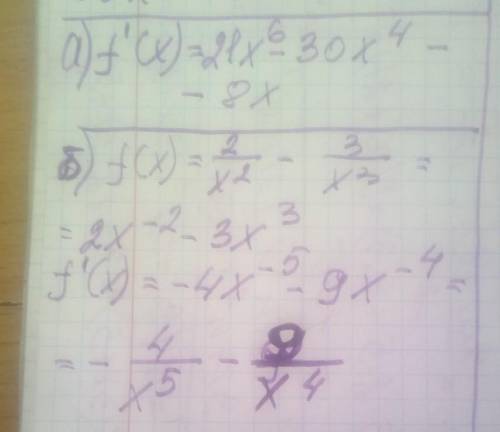 а) f'(x) = 21x⁶ - 30x⁴ -
- 8x
б) f(x) = 2/x² - 3/x³ =
= 2x⁻² - 3x³
f'(x) = -4x⁻⁵ - 9x⁻⁴ =
= - 4/x⁵ - 9/x⁴